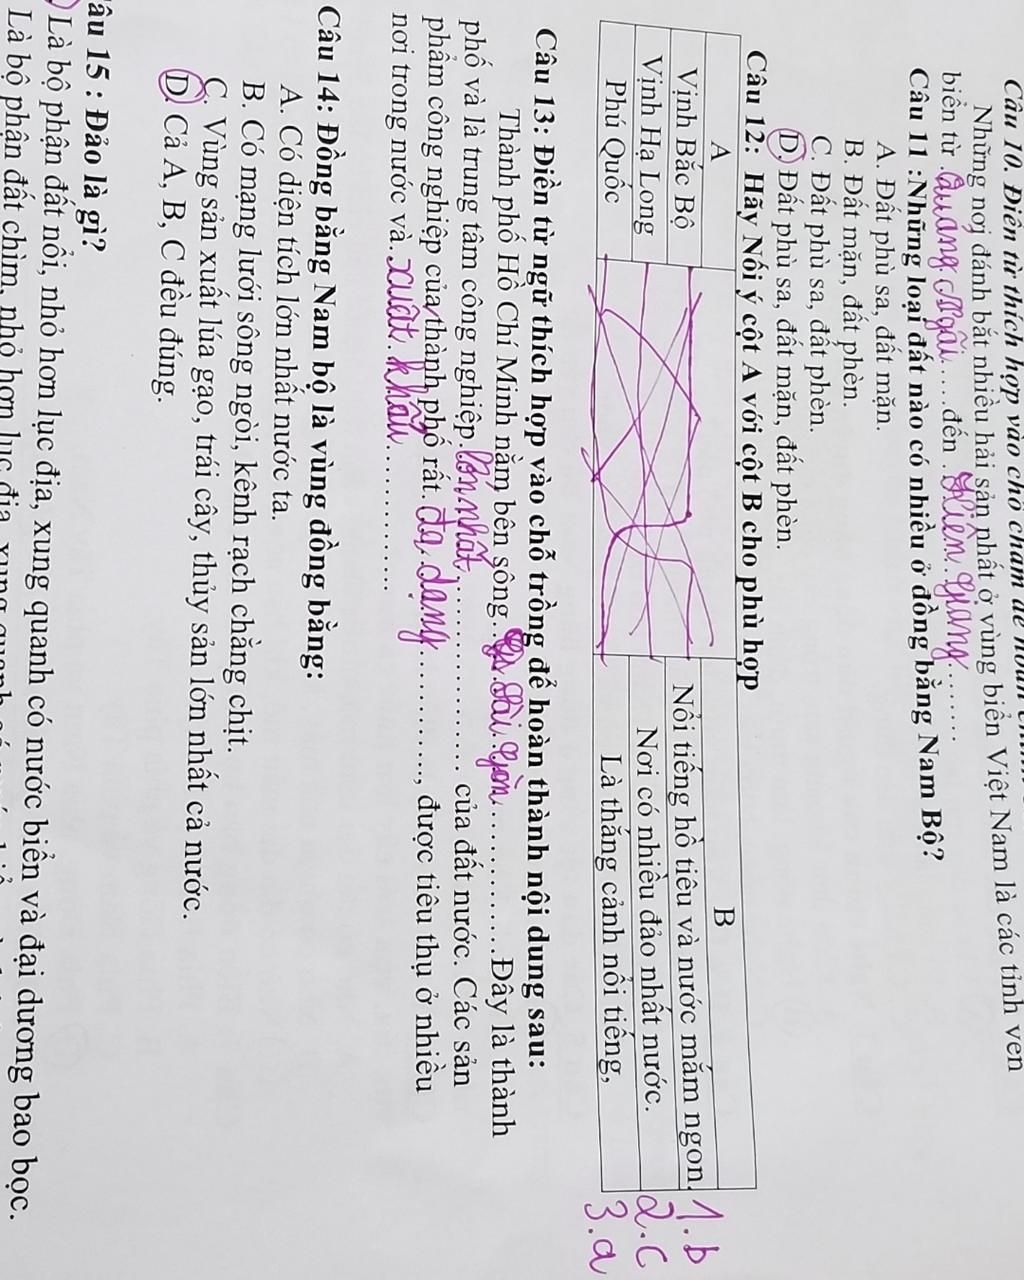 Câu 10. Điền từ thích hợp vào chỗ chấm để hoàn
Những nơi đánh bắt nhiều hải sản nhất ở vùng biển Việt Nam là các tỉnh ven
biển từ .Quảng Ngãi.....đến .Kiên Giang........
Câu 11 :Những loại đất nào có nhiều ở đồng bằng Nam Bộ?
A. Đất phù sa, đất mặn.
B. Đất mặn, đất phèn.
C. Đất phù sa, đất phèn.
D. Đất phù sa, đất mặn, đất phèn.
Câu 12: Hãy Nối ý cột A với cột B cho phù hợp
A B
Vịnh Bắc Bộ Nổi tiếng hồ tiêu và nước mắm ngon. 1.b
Vịnh Hạ Long Nơi có nhiều đảo nhất nước. 2.c
Phú Quốc Là thắng cảnh nổi tiếng, 3.a
Câu 13: Điền từ ngữ thích hợp vào chỗ trồng để hoàn thành nội dung sau:
Thành phố Hồ Chí Minh nằm bên sông...Sài Gòn................Đây là thành
phố và là trung tâm công nghiệp.lớn nhất................... của đất nước. Các sản
phẩm công nghiệp của thành phố rất. đa dạng............, được tiêu thụ ở nhiều
nơi trong nước và..xuất khẩu................
Câu 14: Đồng bằng Nam bộ là vùng đồng bằng:
A. Có diện tích lớn nhất nước ta.
B. Có mạng lưới sông ngòi, kênh rạch chằng chịt.
C. Vùng sản xuất lúa gạo, trái cây, thủy sản lớn nhất cả nước.
D. Cả A, B, C đều đúng.
âu 15 : Đảo là gì?
Là bộ phận đất nổi, nhỏ hơn lục địa, xung quanh có nước biển và đại dương bao bọc.
Là bộ phận đất chìm, nhỏ hơn lục địa, xung quanh có